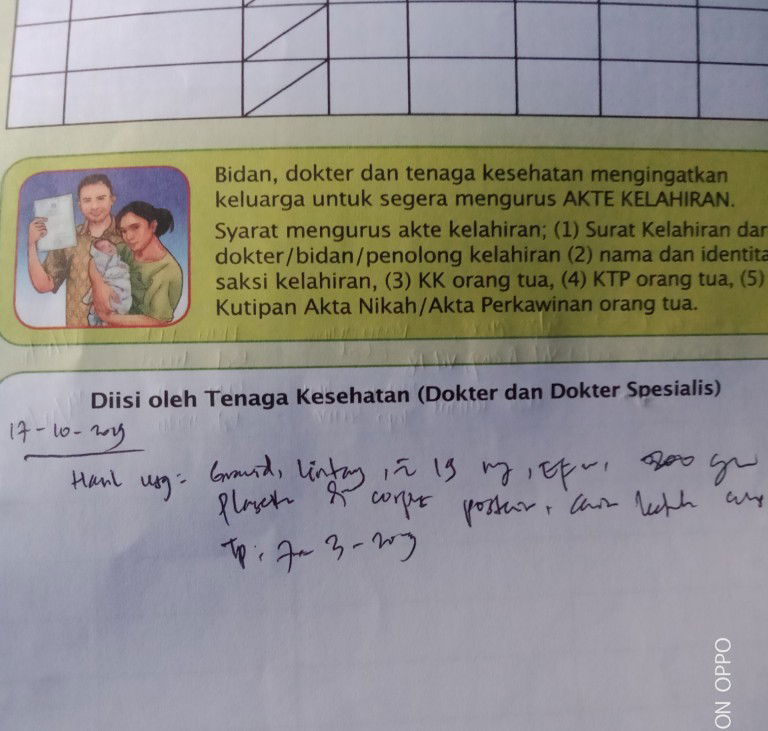 Bidan, dokter dan tenaga kesehatan mengingatkan
keluarga untuk segera mengurus AKTE KELAHIRAN.
Syarat mengurus akte kelahiran; (1) Surat Kelahiran dar
dokter/bidan/penolong kelahiran (2) nama dan identita
saksi kelahiran, (3) KK orang tua, (4) KTP orang tua, (5)
Kutipan Akta Nikah/Akta Perkawinan orang tua.
Diisi oleh Tenaga Kesehatan (Dokter dan Dokter Spesialis)
17-10-2019
Hasil usg = Gravid, lintang, 19
plasenta di corpus posterior,
Tp: 7-3-
ON OPPO